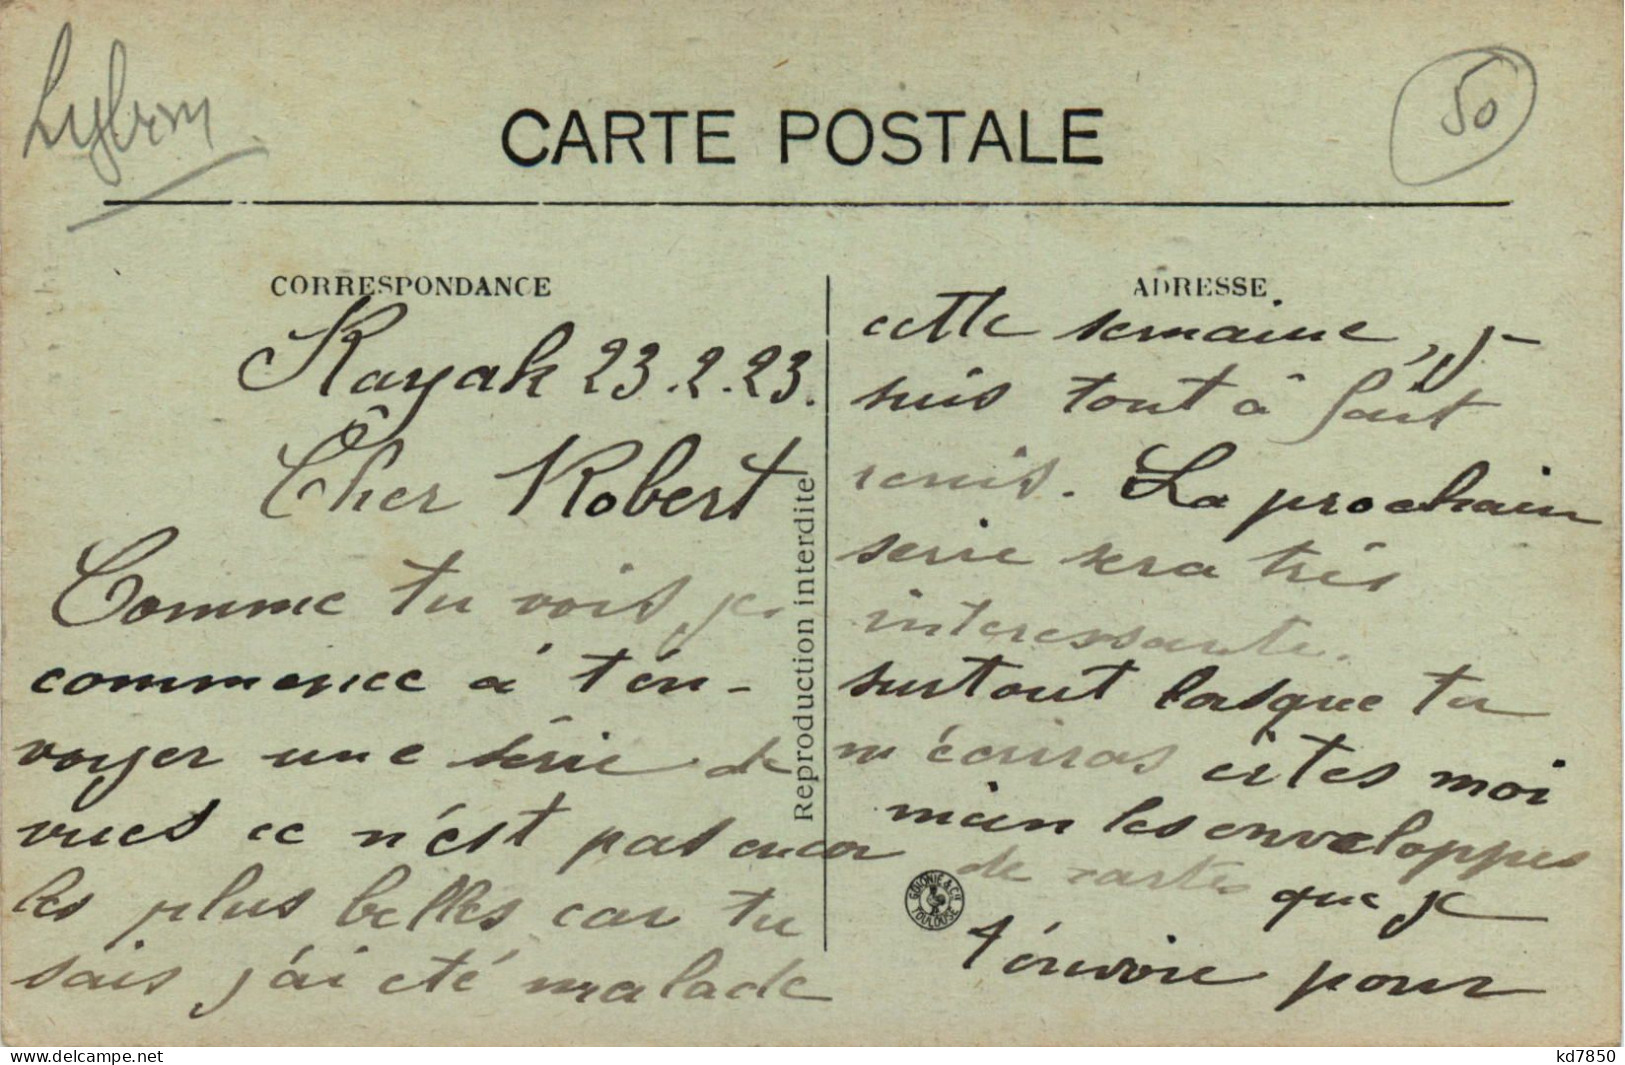 50
CARTE POSTALE
CORRESPONDANCE
Rayak 23.2.23.
Cher Robert
Comme tu vois je
commence à t'en-
voyer une série de
vues ce n'est pas encor
les plus belles car tu
sais j'ai été malade
Reproduction interdite
ADRESSE
cette semaine, j-
suis tout à fait
remis. La prochain
serie sera très
interessante.
surtout lorsque tu
m'écriras
moi
les enveloppes
de cartes que je
t'envoie pour
TOULOUSE
www.delcampe.net
kd7850